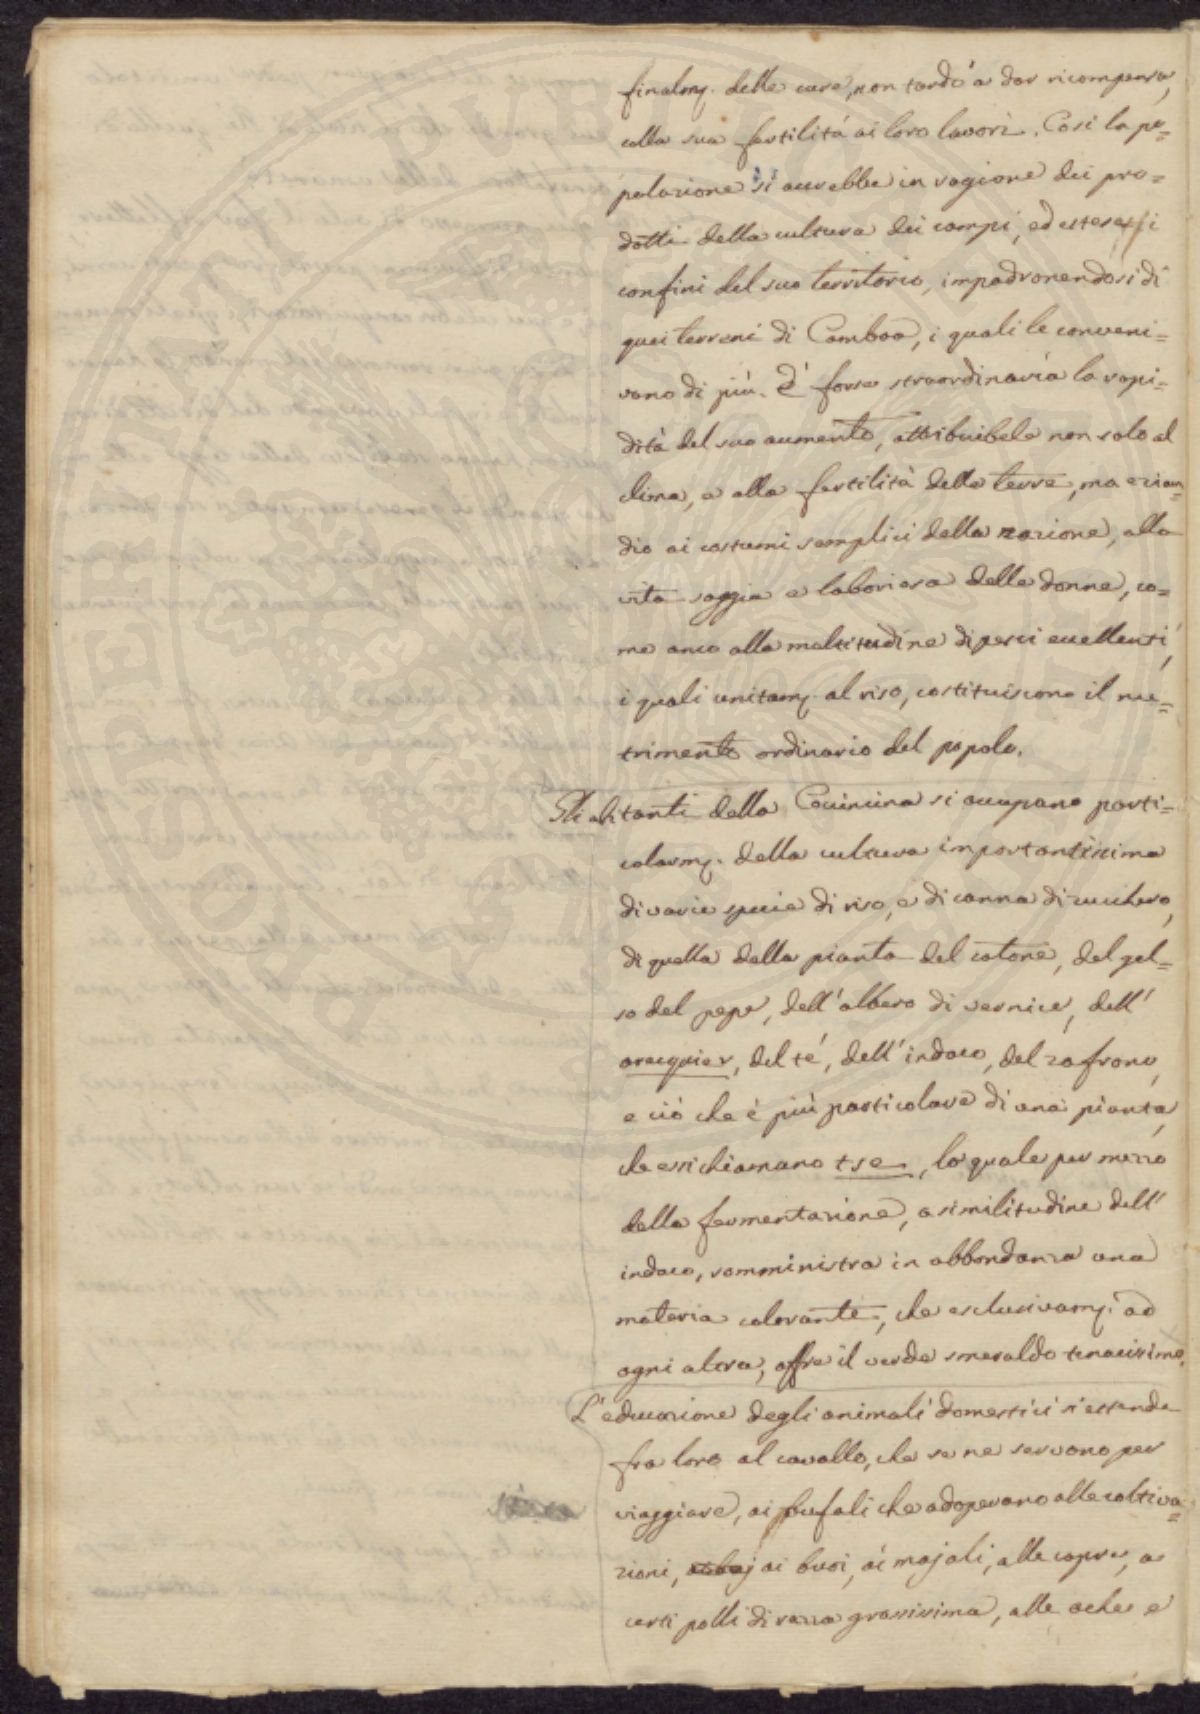 finalmᵉ. delle cure, non tardò a dar ricompensa,
colla sua fertilitá ai loro lavori. Così la po=
polazione si accrebbe in ragione dei pro=
dotti della cultura dei campi, ed estese i
confini del suo territorio, impadronendosi di
quei terreni di Camboa, i quali le conveni=
vano di più. E' forse straordinaria la rapi=
dità del suo aumento, attribuibile non solo al
clima, e alla fertilità delle terre, ma ezian=
dio ai costumi semplici della nazione, alla
vita saggia e laboriosa delle donne, co=
me anco alla moltitudine di pesci eccellenti,
i quali unitamᵉ. al riso, costituiscono il nu=
trimento ordinario del popolo.
Gli abitanti della Cocincina si occupano parti=
colarmᵉ. della cultura importantissima
di varie specie di riso, e di canna di zucchero,
di quella della pianta del cotone, del gel=
so del pepe, dell' albero di vernice, dell'
arecquier, del té, dell' indaco, del zafrano,
e ciò che è più particolare di una pianta,
che essi chiamano tse, la quale per mezzo
della fermentazione, a similitudine dell'
indaco, somministra in abbondanza una
materia colorante, che esclusivamᵉ. ad
ogni altra, offre il verde smeraldo tenacissimo.
L' educazione degli animali domestici si estende
fra loro al cavallo, che se ne servono per
viaggiare, ai bufali che adoperano alle coltiva=
zioni, ai buoi, ai majali, alle capre, a
certi polli di razza grassissima, alle oche e